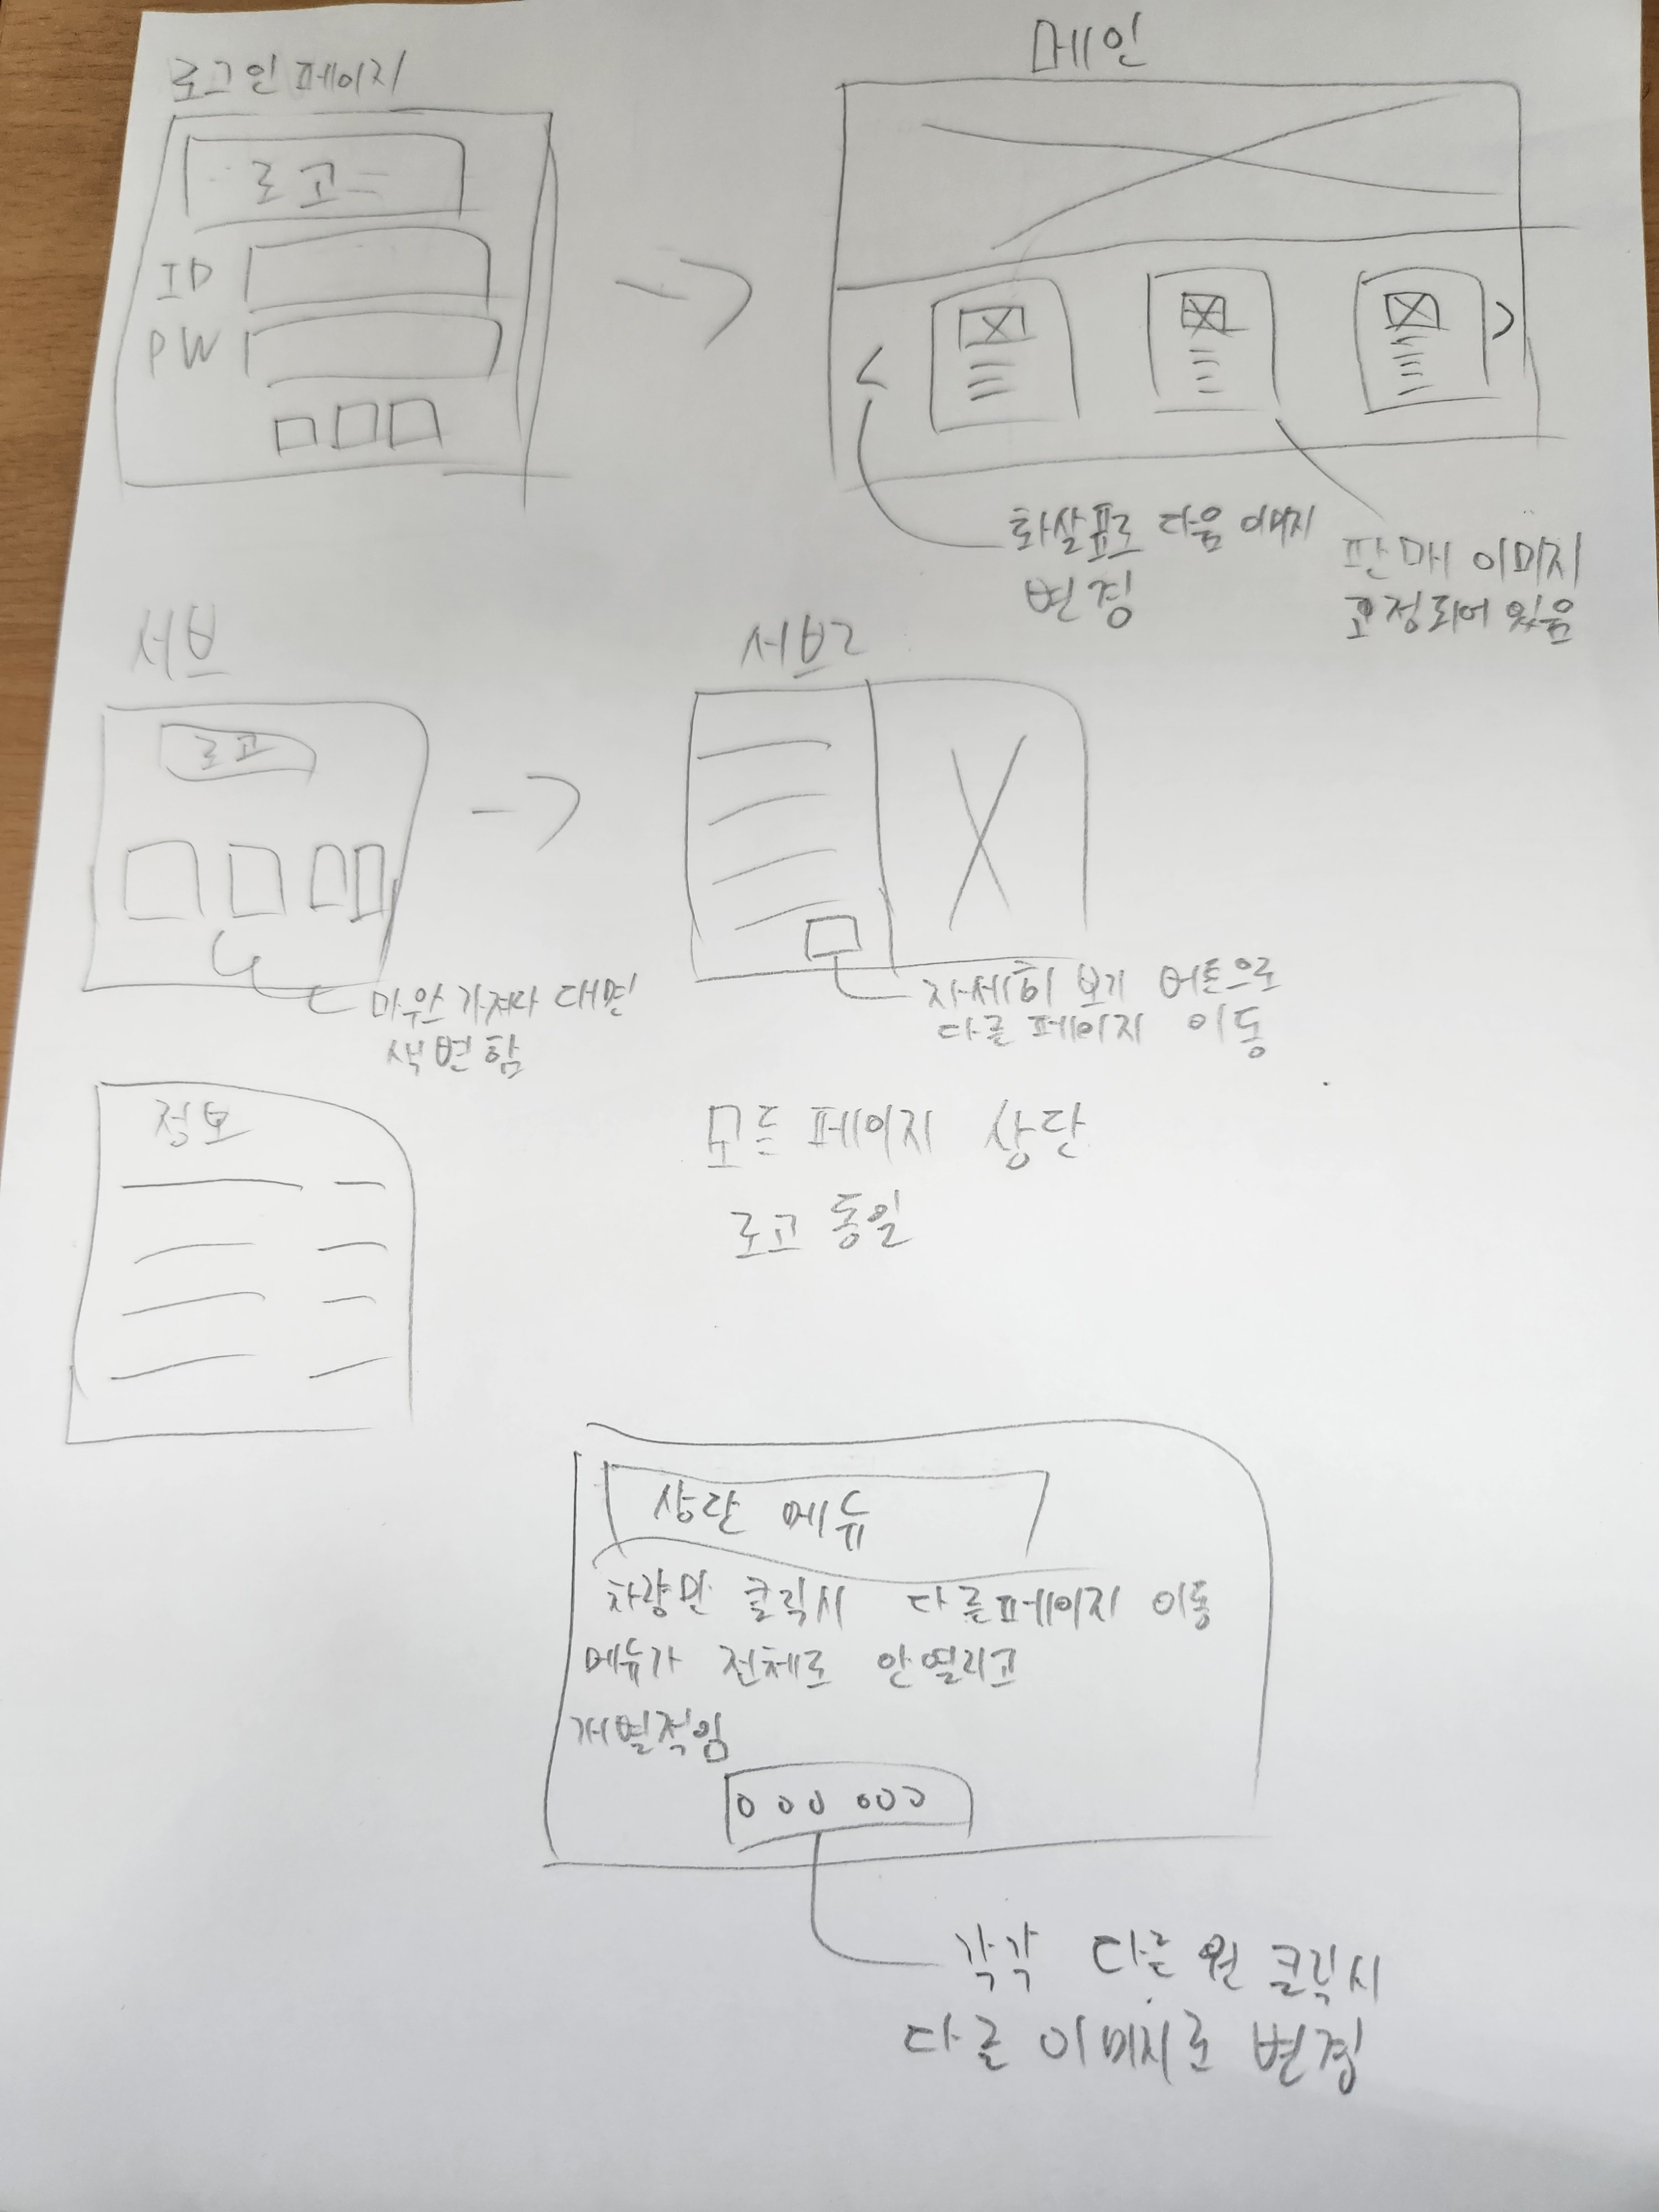 로그인 페이지
로고
ID
PW
메인
<
>
화살표로 다음 이미지
변경
판매 이미지
고정되어 있음
서브
로고
마우스 가져다 대면
색변함
서브2
자세히 보기 버튼으로
다른 페이지 이동
정보
모든 페이지 상단
로고 동일
상단 메뉴
차량만 클릭시 다른페이지 이동
메뉴가 전체로 안열리고
개별적임
각각 다른 원 클릭시
다른 이미지로 변경